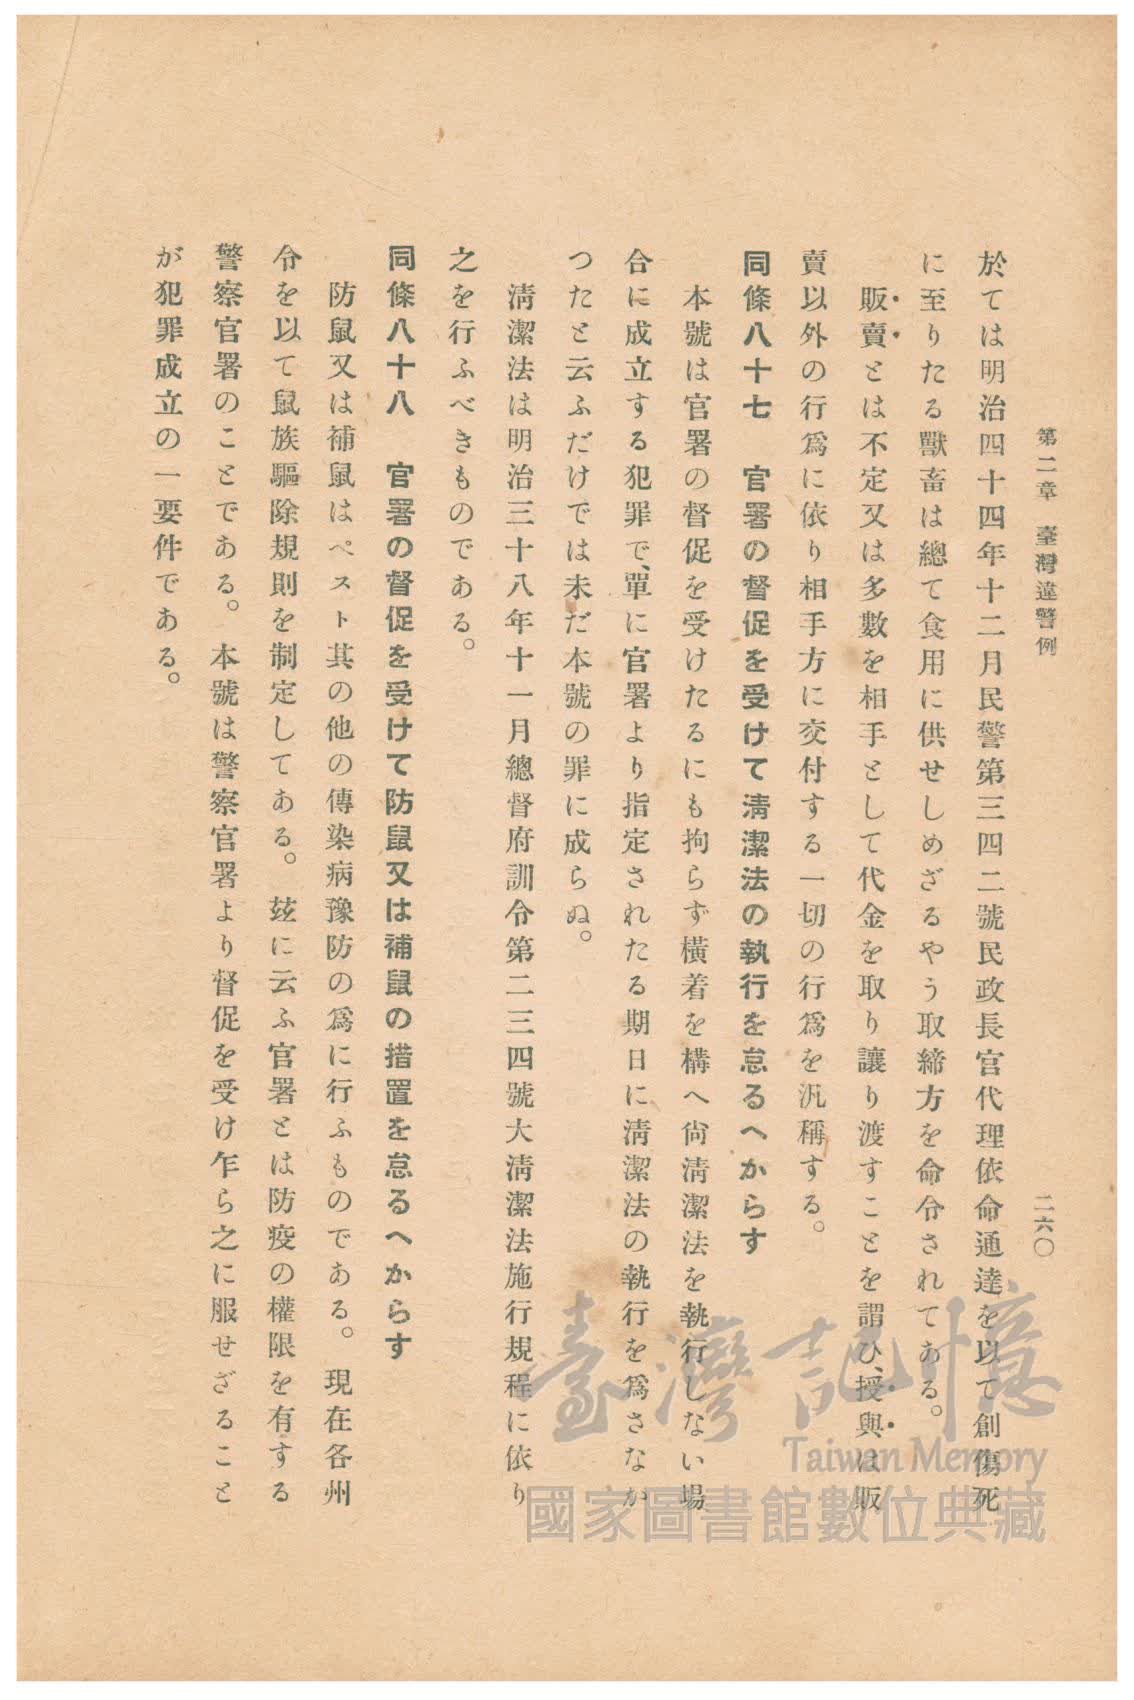 第二章　臺灣違警例
二六〇
於ては明治四十四年十二月民警第三四二號民政長官代理依命通達を以て創傷死
に至りたる獸畜は總て食用に供せしめざるやう取締方を命令されてある。
販賣とは不定又は多數を相手として代金を取り讓り渡すことを謂ひ、授與は販
賣以外の行爲に依り相手方に交付する一切の行爲を汎稱する。
同條八十七　官署の督促を受けて淸潔法の執行を怠るへからす
本號は官署の督促を受けたるにも拘らず橫着を構へ尙淸潔法を執行しない場
合に成立する犯罪で、單に官署より指定されたる期日に淸潔法の執行を爲さなか
つたと云ふだけでは未だ本號の罪に成らぬ。
淸潔法は明治三十八年十一月總督府訓令第二三四號大淸潔法施行規程に依り
之を行ふべきものである。
同條八十八　官署の督促を受けて防鼠又は補鼠の措置を怠るへからす
防鼠又は補鼠はペスト其の他の傳染病豫防の爲に行ふものである。現在各州
令を以て鼠族驅除規則を制定してある。玆に云ふ官署とは防疫の權限を有する
警察官署のことである。本號は警察官署より督促を受け乍ら之に服せざること
が犯罪成立の一要件である。
臺灣記憶
Taiwan Memory
國家圖書館數位典藏